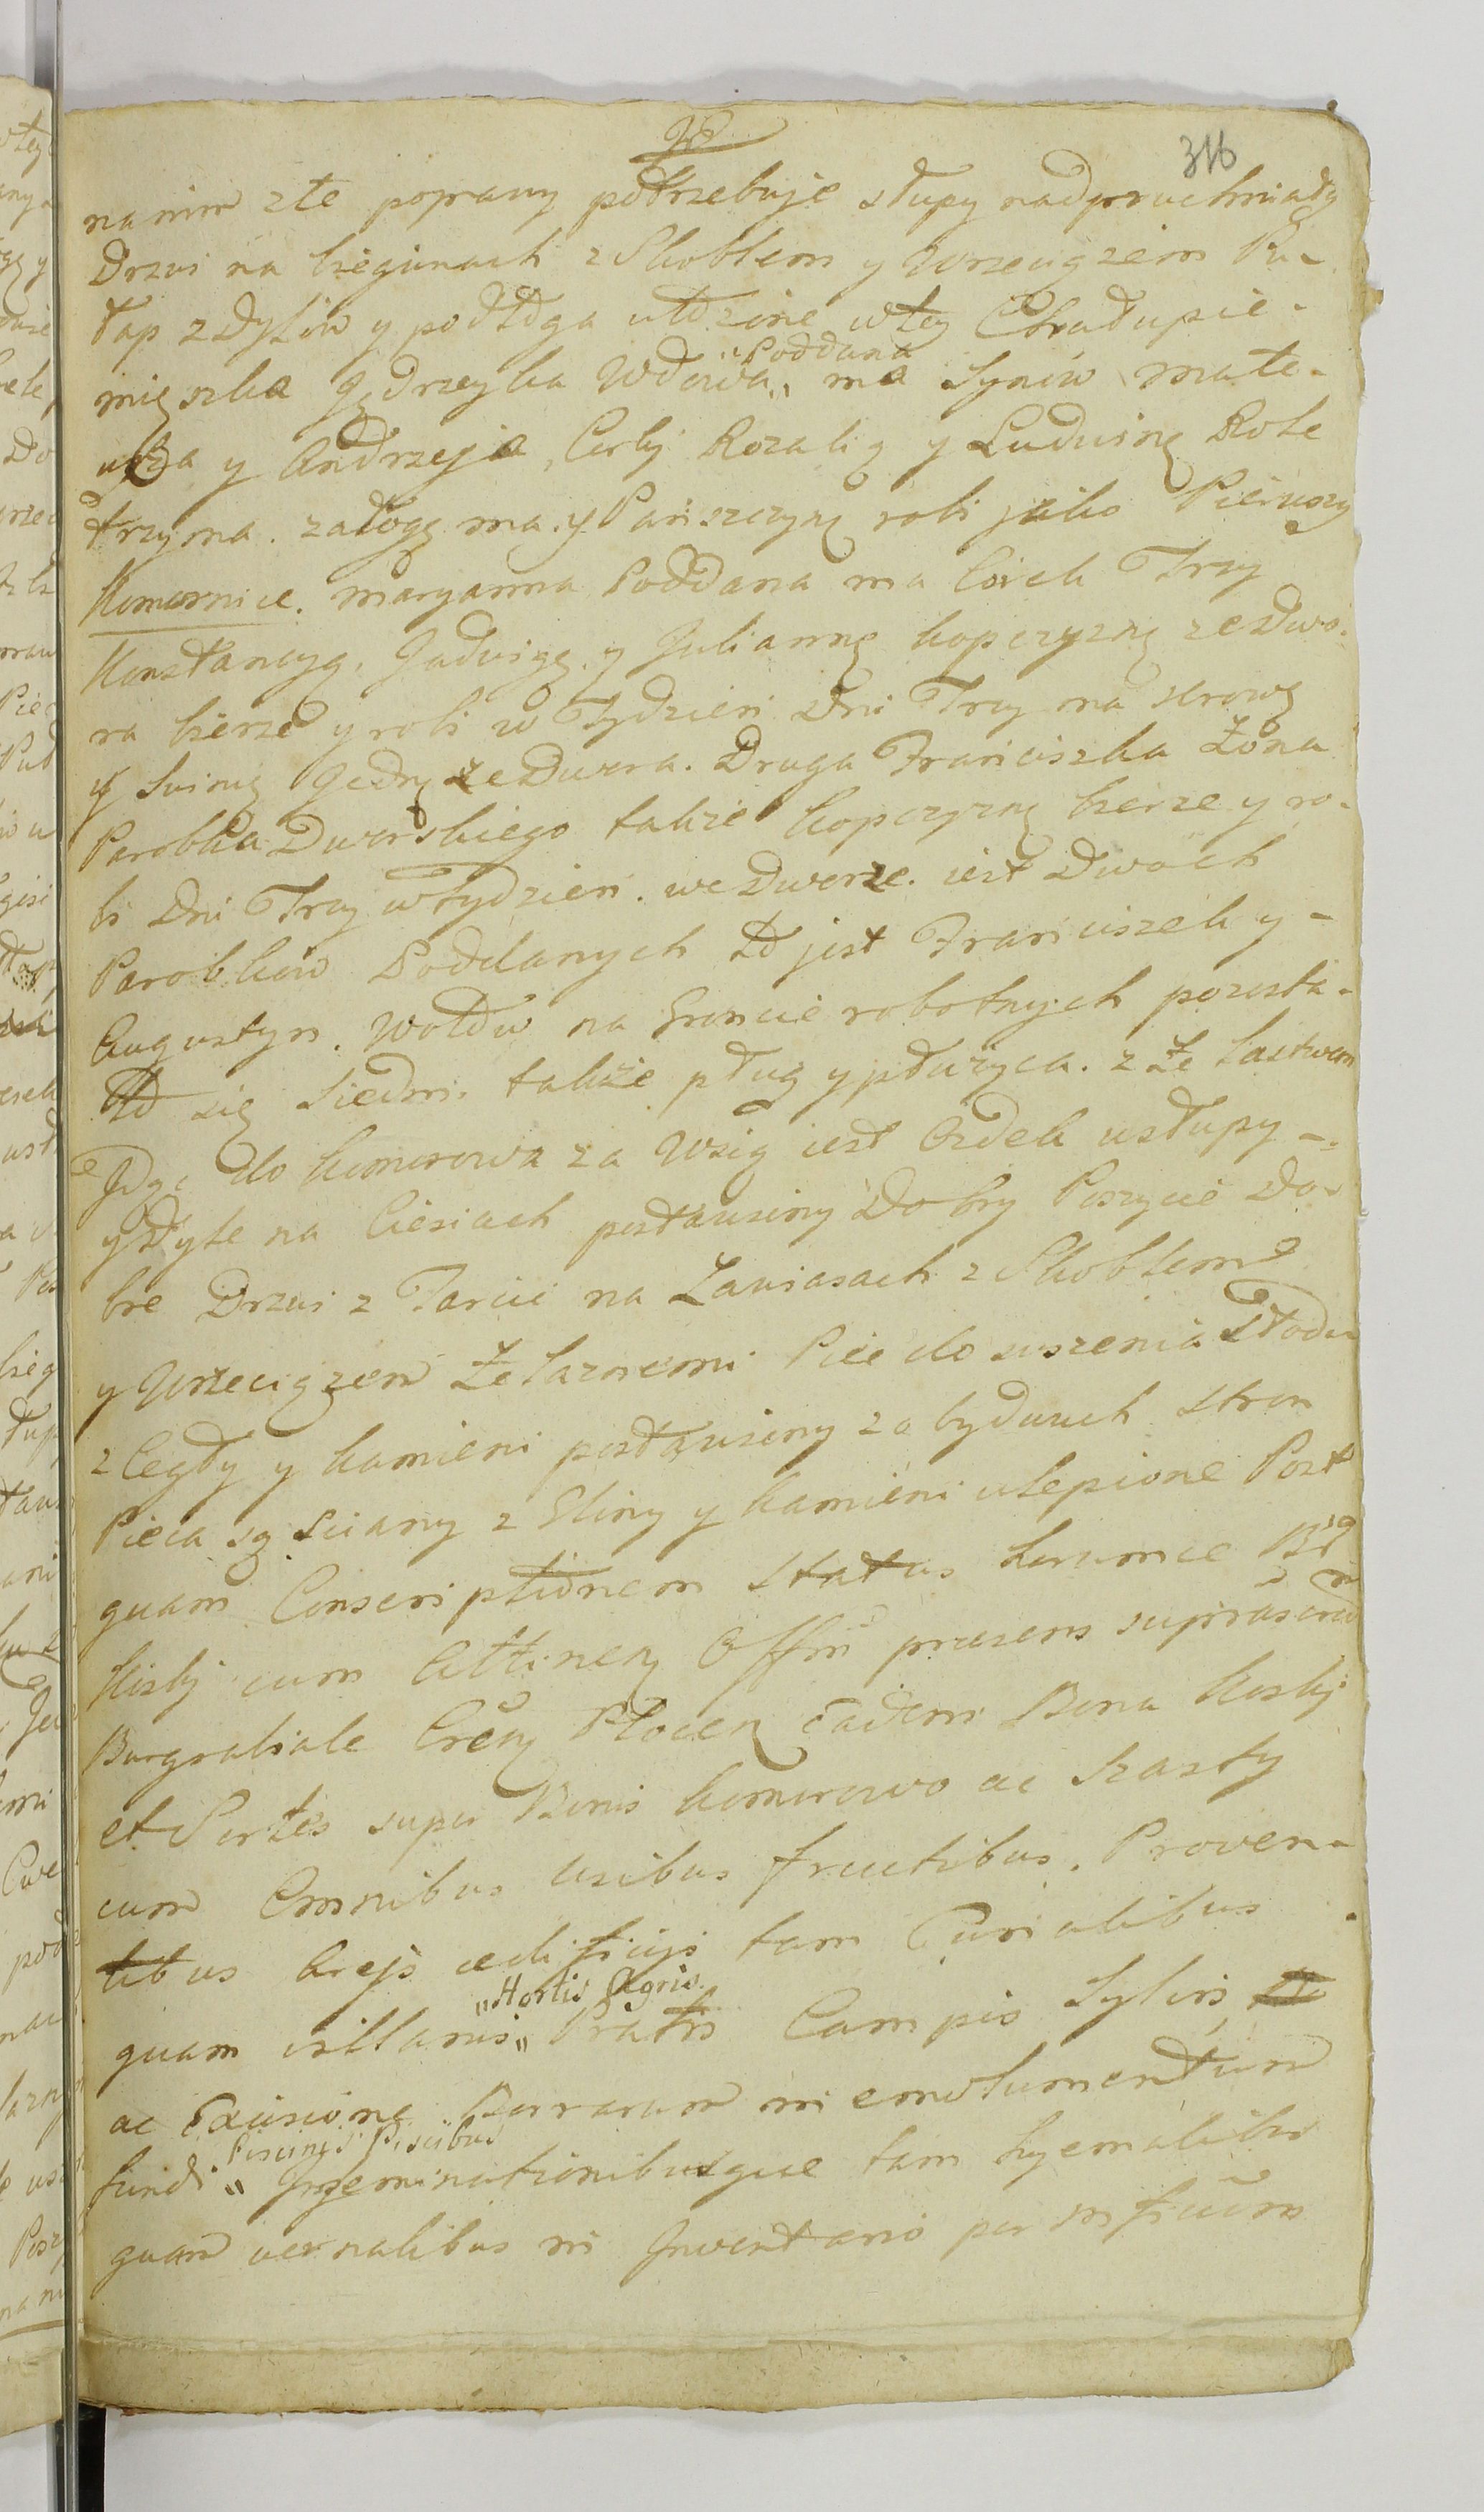 316
na nim złe poprawy potrzebuje słupy nadpruchniałe
Drzwi na biegunach z Skoblem y Wrzeciązem Pu-
łap z Dylów y podłoga ułożone w tey Chałupie-
mięszka Jędrzeyka Wdowa „ ma Synów Mate-
„Poddana
usza y Andrzeja, Corki Rozalią y Ludwinę Role
trzyma. załogę ma. y Pańszczyznę robi jako Pierwszy
Komornice. Maryanna Poddana ma Córek Trzy
Konstancyą, Jadwigę, y Juliannę kopczyznę ze Dwo-
ra bierze y robi w Tydzień Dni Trzy ma krowę
y Swinię Jednę ze Dwora. Druga Franciszka Żona
Parobka Dworskiego także kopczyznę bierze y ro-
bi Dni Trzy w tydzień. we Dworze. iest Dwóch
Parobków Poddanych to jest Franciszek y-
Augustyn. Wołów na Groncie robotnych pozosta-
ło się Siedm. także pług y płużyca. z Żelastwem
Idąc do Komorowa za Wsią iest Ozdek w słupy-
y Dyle na Ciesiach postawiony Dobry Poszycie Do-
bre Drzwi z Tarcic na Zawiasach z Skoblem
y Wrzeciązem Żelaznemi Piec do suszenia Słodu
z Cegły y kamieni postawiony z obydwuch stron
Pieca są Sciany z Gliny y kamieni ulepione Post
quam Conscriptionem Status horumce
Kisky cum Attinen Offm praesens
Burgrabiale Cren Plocen Eadem Bona Kisky
et Sortes super Bonis Komorowo ac Szasty
cum Omnibus Usibus fructibus, Proven-
tibus Areys aedificijs tam Curialibus
quam villanis „ Pratis Campis Sylvis
„Hortis Agris.
ac Excisione Borrarum in emolumentum
fundi „ Ingeminationibusque tam hyemalibus
Piscinis Piscibus
quam vernalibus in Inventario per